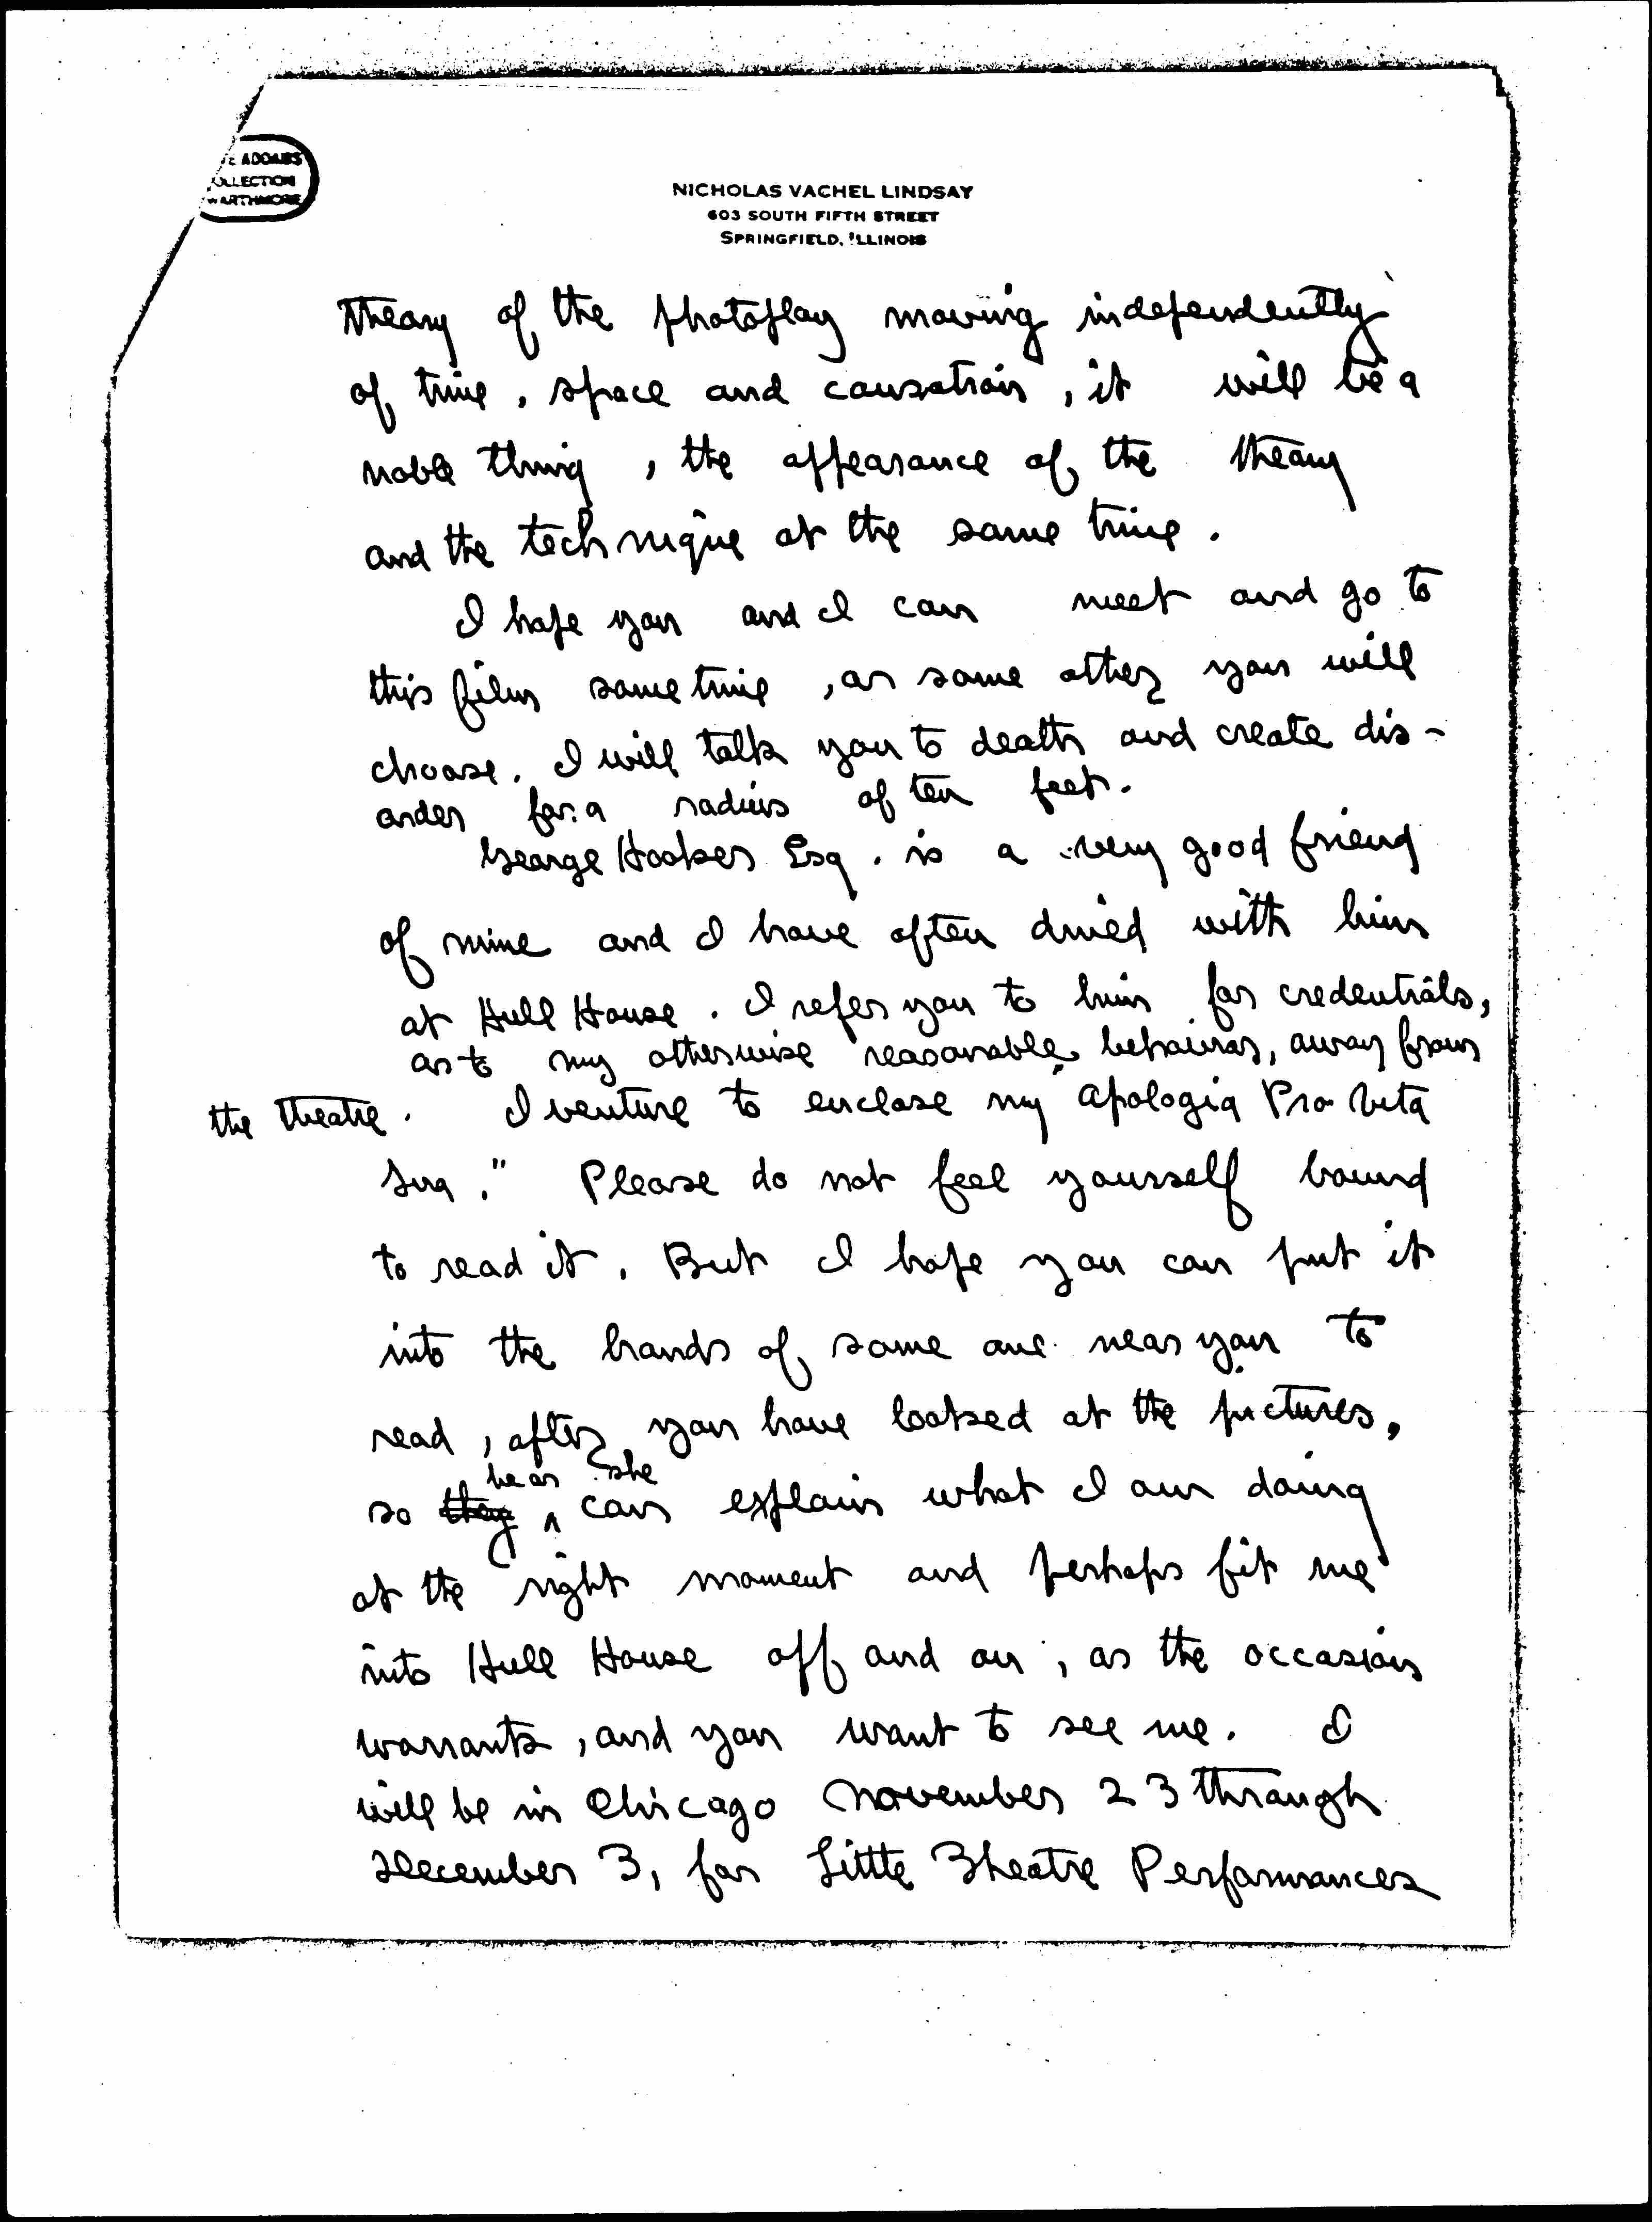 E ADDAMS
OLLECTION
WARTHMORE
NICHOLAS VACHEL LINDSAY
603 SOUTH FIFTH STREET
SPRINGFIELD, ILLINOIS
theory of the photoplay moving independently
of time, space and causation, it will be a
noble thing, the appearance of the theory
and the technique at the same time.
I hope you and I can meet and go to
this film some time, or some other you will
choose. I will talk you to death and create dis-
order for a radius of ten feet.
George Hooker Esq. is a very good friend
of mine and I have often dined with him
at Hull House. I refer you to him for credentials,
as to my otherwise reasonable behavior, away from
the theatre. I venture to enclose my Apologia Pro Vita
Sua." Please do not feel yourself bound
to read it. But I hope you can put it
into the hands of some one near you to
read, after you have looked at the pictures,
he or she
so they ^ can explain what I am doing
at the right moment and perhaps fit me
into Hull House off and on, as the occasion
warrants, and you want to see me. I
will be in Chicago November 23 through
December 3, for Little Theatre Performances